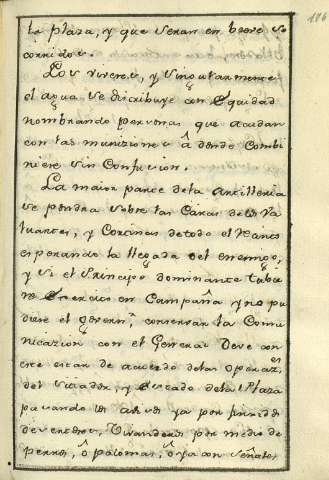 186
la plaza, y que seran en breve so
corridos.
Los viveres, y singularmente
el agua se distribuye con equidad
nombrando personas que acudan
con las muniziones â donde combi
niere sin confusion.
La maior parte dela Artilleria
se pondra sobre las Caras delos Va
luartes, y Cortinas de todo el
esperando la llegada del enemigo,
y si el Principe dominante tubie
re Exercito en Campaña y no pu
diese el govern.r conservar la Comu
nicazion con el General Deve con
este estar de acuerdo delas Operaz.es
del Sitiador, y Estado dela Plaza
pasando los avisos ya por
Vivanderos, por medio de
perros, ô palomas, ô ya con señales,